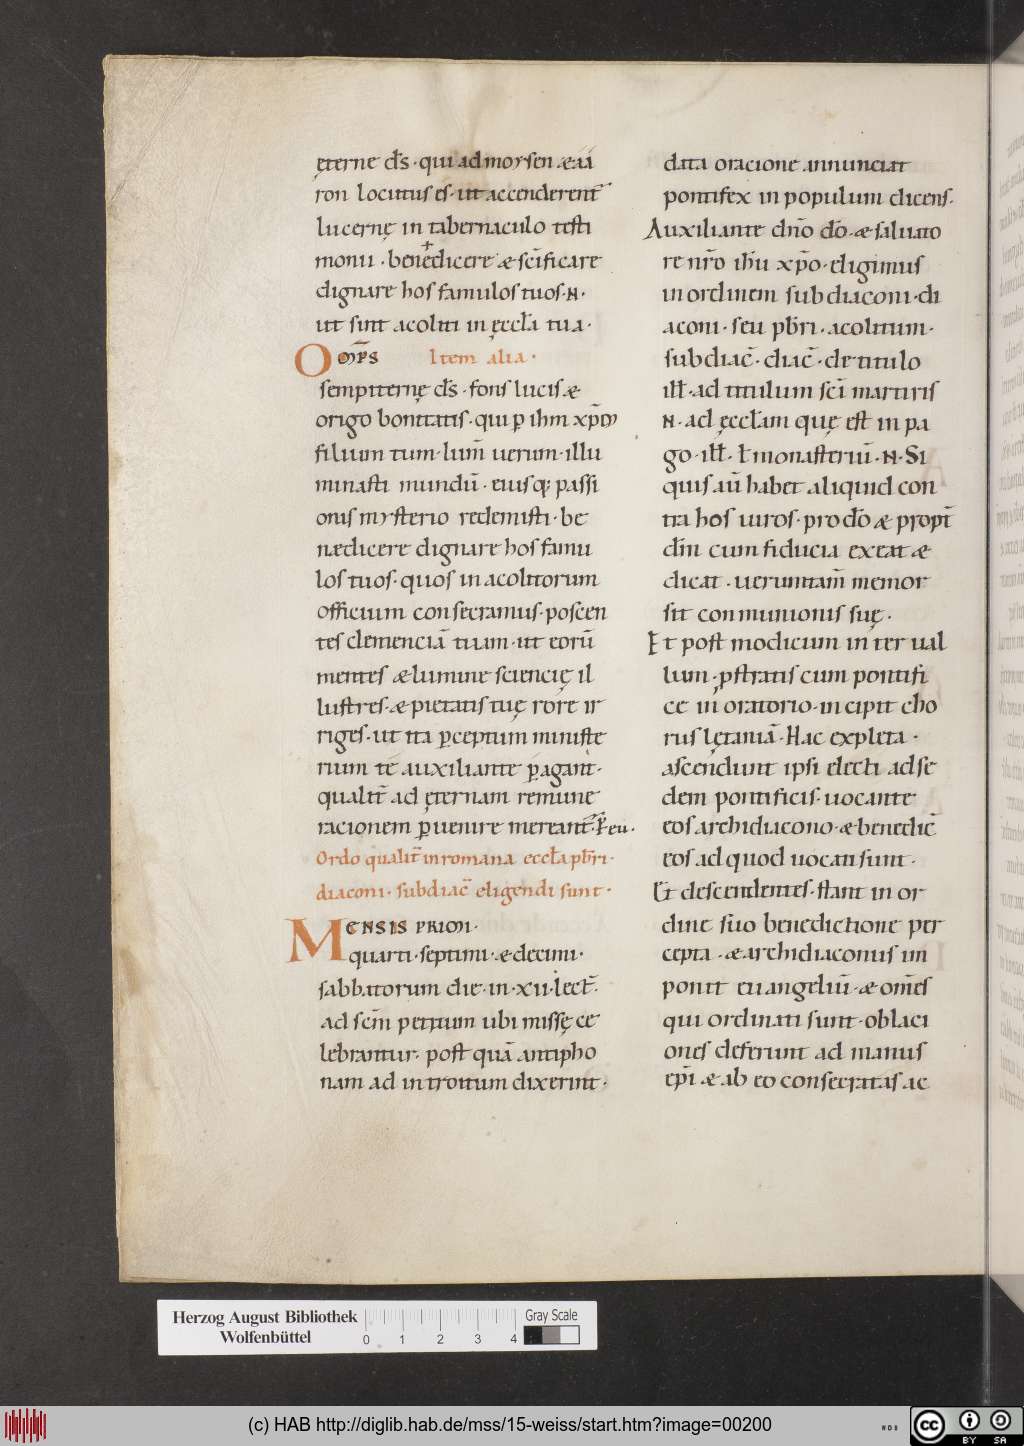 ęterne ds̄ · qui ad moysen & aa
ron locutus es · ut accenderent̄
lucernę in tabernaculo testi
monii · benedicere & sc̄ificare
dignare hos famulos tuos · N ·
ut sint acoliti in ęccła tua ·
Om̄ps Item alia ·
sempiternę ds̄ · fons lucis &
origo bonitatis · qui ꝑ ihm xp̄m
filium tuum · lum̄ uerum · illu
minasti mundū · eiusq; passi
onis mysterio redemisti · be
nedicere dignare hos famu
los tuos · quos in acolitorum
officium consecramus · poscen
tes clemenciā tuam · ut eorū
mentes & lumine sciencię il
lustres · & pietatis tuę rore ir
riges · ut ita ꝑceptum ministe
rium te auxiliante ꝑagant ·
qualit̄ ad ęternam remune
racionem ꝑuenire mereant̄ ·
Ordo qualit̄ in romana eccła pb̄ri ·
diaconi · subdiac̄ eligendi sunt ·
MENSIS PRIMI ·
quarti · septimi · & decimi ·
sabbatorum die · in · xii · lect̄ ·
ad sc̄m petrum ubi missę ce
lebrantur · post quā antipho
nam ad introitum dixerint ·
data oracione annunciat
pontifex in populum dicens ·
Auxiliante dn̄o do̅ · & saluato
re nr̄o ih̄u xp̄o · eligimus
in ordinem subdiaconi · di
aconi · seu pb̄ri · acolitum ·
subdiac̄ · diac̄ · de titulo
ill̄ · ad titulum sc̄i martiris
N · ad ęccłam quę est in pa
go · ill̄ · ł monasteriū · N · Si
quis aū habet aliquid con
tra hos uiros · pro do̅ & propt̄
dm̄ cum fiducia exeat &
dicat · ueruntam̄ memor
sit conmunionis suę ·
Et post modicum interual
lum · pstratis cum pontifi
ce in oratorio · incipit cho
rus lętaniā · Hac expleta ·
ascendunt ipsi electi ad se
dem pontificis · uocante
eos archidiacono · & benedic̄
eos ad quod uocati sunt ·
Et descendentes · stant in or
dine suo benedictione per
cepta · & archidiaconus im
ponit euangeliū · & om̄es
qui ordinati sunt · oblaci
ones deferunt ad manus
ep̄i & ab eo consecratas ac
Herzog August Bibliothek
Wolfenbüttel
0 1 2 3 4
Gray Scale
(c) HAB http://diglib.hab.de/mss/15-weiss/start.htm?image=00200
WDB
cc BY SA